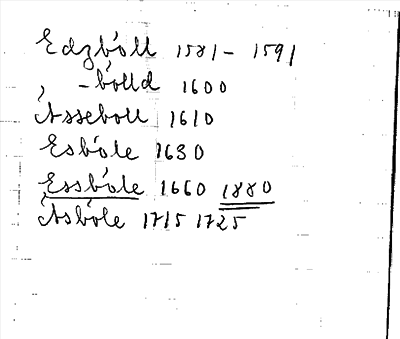 Edzböll 1581 - 1591
, -bölld 1600
Åsseboll 1610
Esböle 1630
Essböle 1660 1880
Åsböle 1715 1725